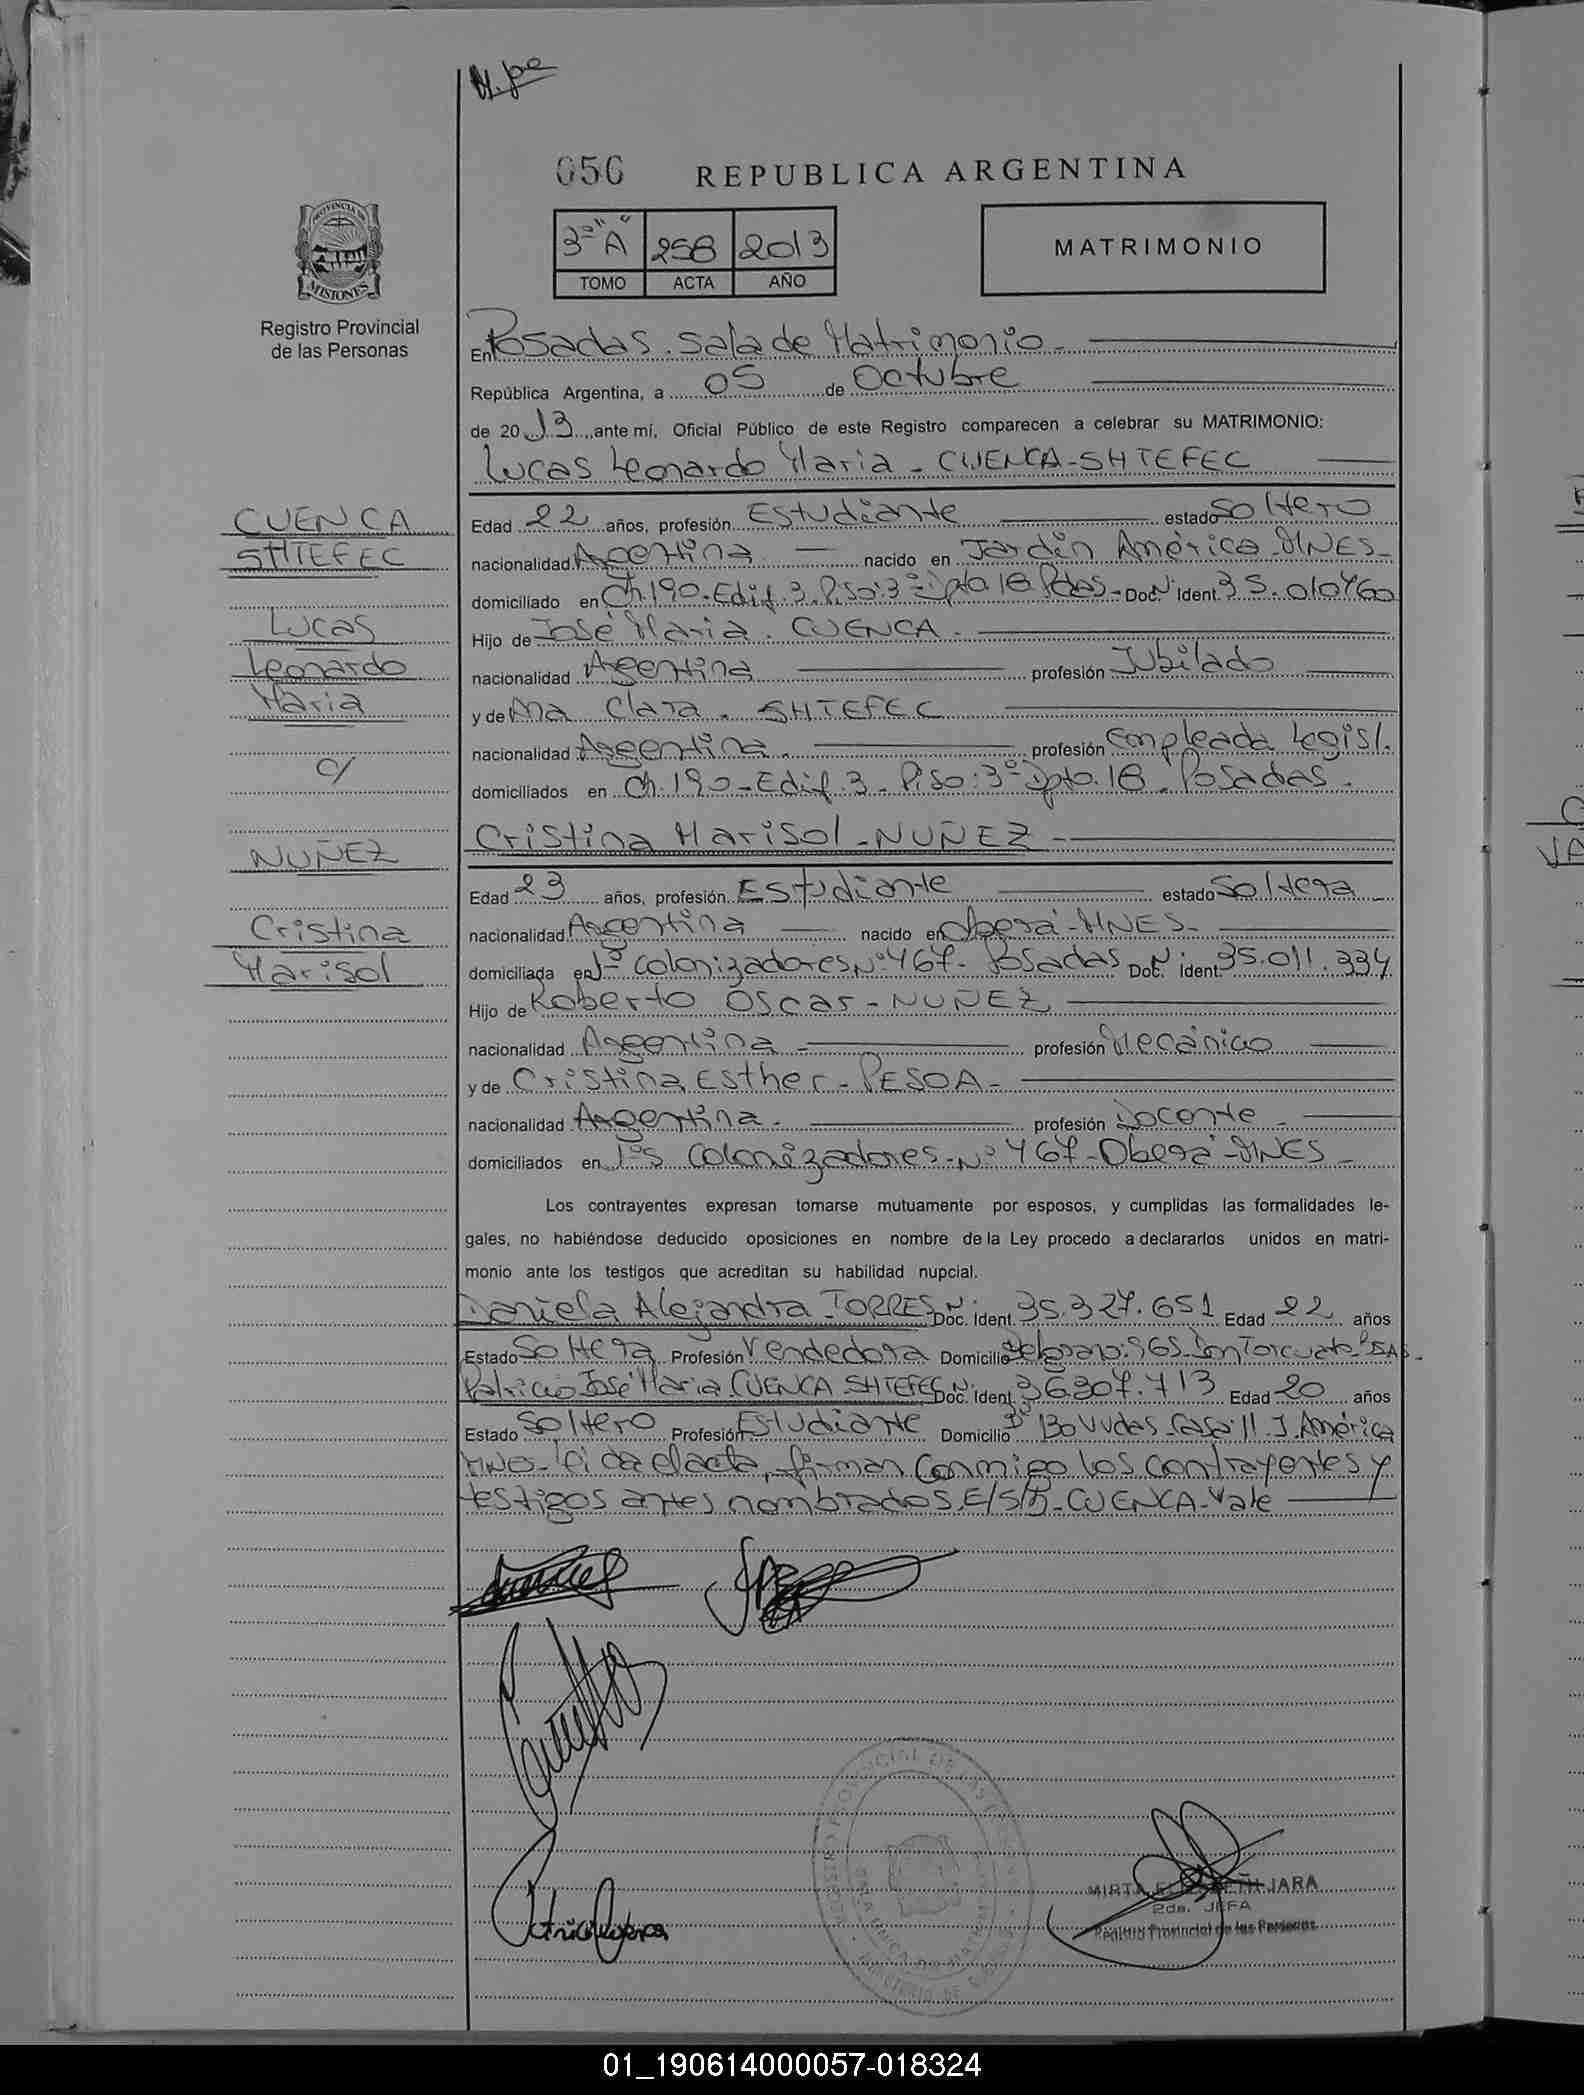 056 REPUBLICA ARGENTINA
PROVINCIA DE
MISIONES
Registro Provincial
de las Personas
3º "A" 258 2013
TOMO ACTA AÑO
MATRIMONIO
En Posadas. Sala de Matrimonio.-
República Argentina, a 05 de Octubre
de 2013, ante mí, Oficial Público de este Registro comparecen a celebrar su MATRIMONIO:
Lucas Leonardo Maria - CUENCA-SHTEFEC
CUENCA
SHTEFEC
Lucas
Leonardo
Maria
c/
NUÑEZ
Cristina
Marisol
Edad 22 años, profesión Estudiante estado Soltero
nacionalidad Argentina nacido en Jardín América-MNES-
domiciliado en Ch.190-Edif.3.Piso:3º Dpto 18 Pdas- Doc. Ident. Nº 35.010760
Hijo de José Maria. CUENCA.
nacionalidad Argentina profesión Jubilado
y de Ana Clara. SHTEFEC
nacionalidad Argentina. profesión Empleada Legisl.
domiciliados en Ch.190-Edif.3-Piso:3º Dpto.18. Posadas.
Cristina Marisol-NUÑEZ-
Edad 23 años, profesión Estudiante estado Soltera
nacionalidad Argentina nacido en Oberá-MNES-
domiciliada en 1º Colonizadores Nº467- Posadas Doc. Ident. Nº 35.011.334
Hijo de Roberto Oscar-NUÑEZ
nacionalidad Argentina profesión Mecánico
y de Cristina Esther-PESOA-
nacionalidad Argentina. profesión Docente
domiciliados en 1ºs Colonizadores-Nº467-Oberá-MNES-
Los contrayentes expresan tomarse mutuamente por esposos, y cumplidas las formalidades le-
gales, no habiéndose deducido oposiciones en nombre de la Ley procedo a declararlos unidos en matri-
monio ante los testigos que acreditan su habilidad nupcial.
Daniela Alejandra TORRES Doc. Ident. Nº 35.327.651 Edad 22 años
Estado Soltera Profesión Vendedora Domicilio Belgrano:965-Don Torcuato-
Patricio José Maria CUENCA SHTEFEC Doc. Ident. Nº 36.307.713 Edad 20 años
Estado Soltero Profesión Estudiante Domicilio Bº 130 Vvdas-Casa 11 J. América
MNES-leída el acta, firman conmigo los contrayentes y
testigos antes nombrados. E/S/R-CUENCA-Vale
MIRTA JARA
2da. JEFA
Registro Provincial de las Personas
01_190614000057-018324